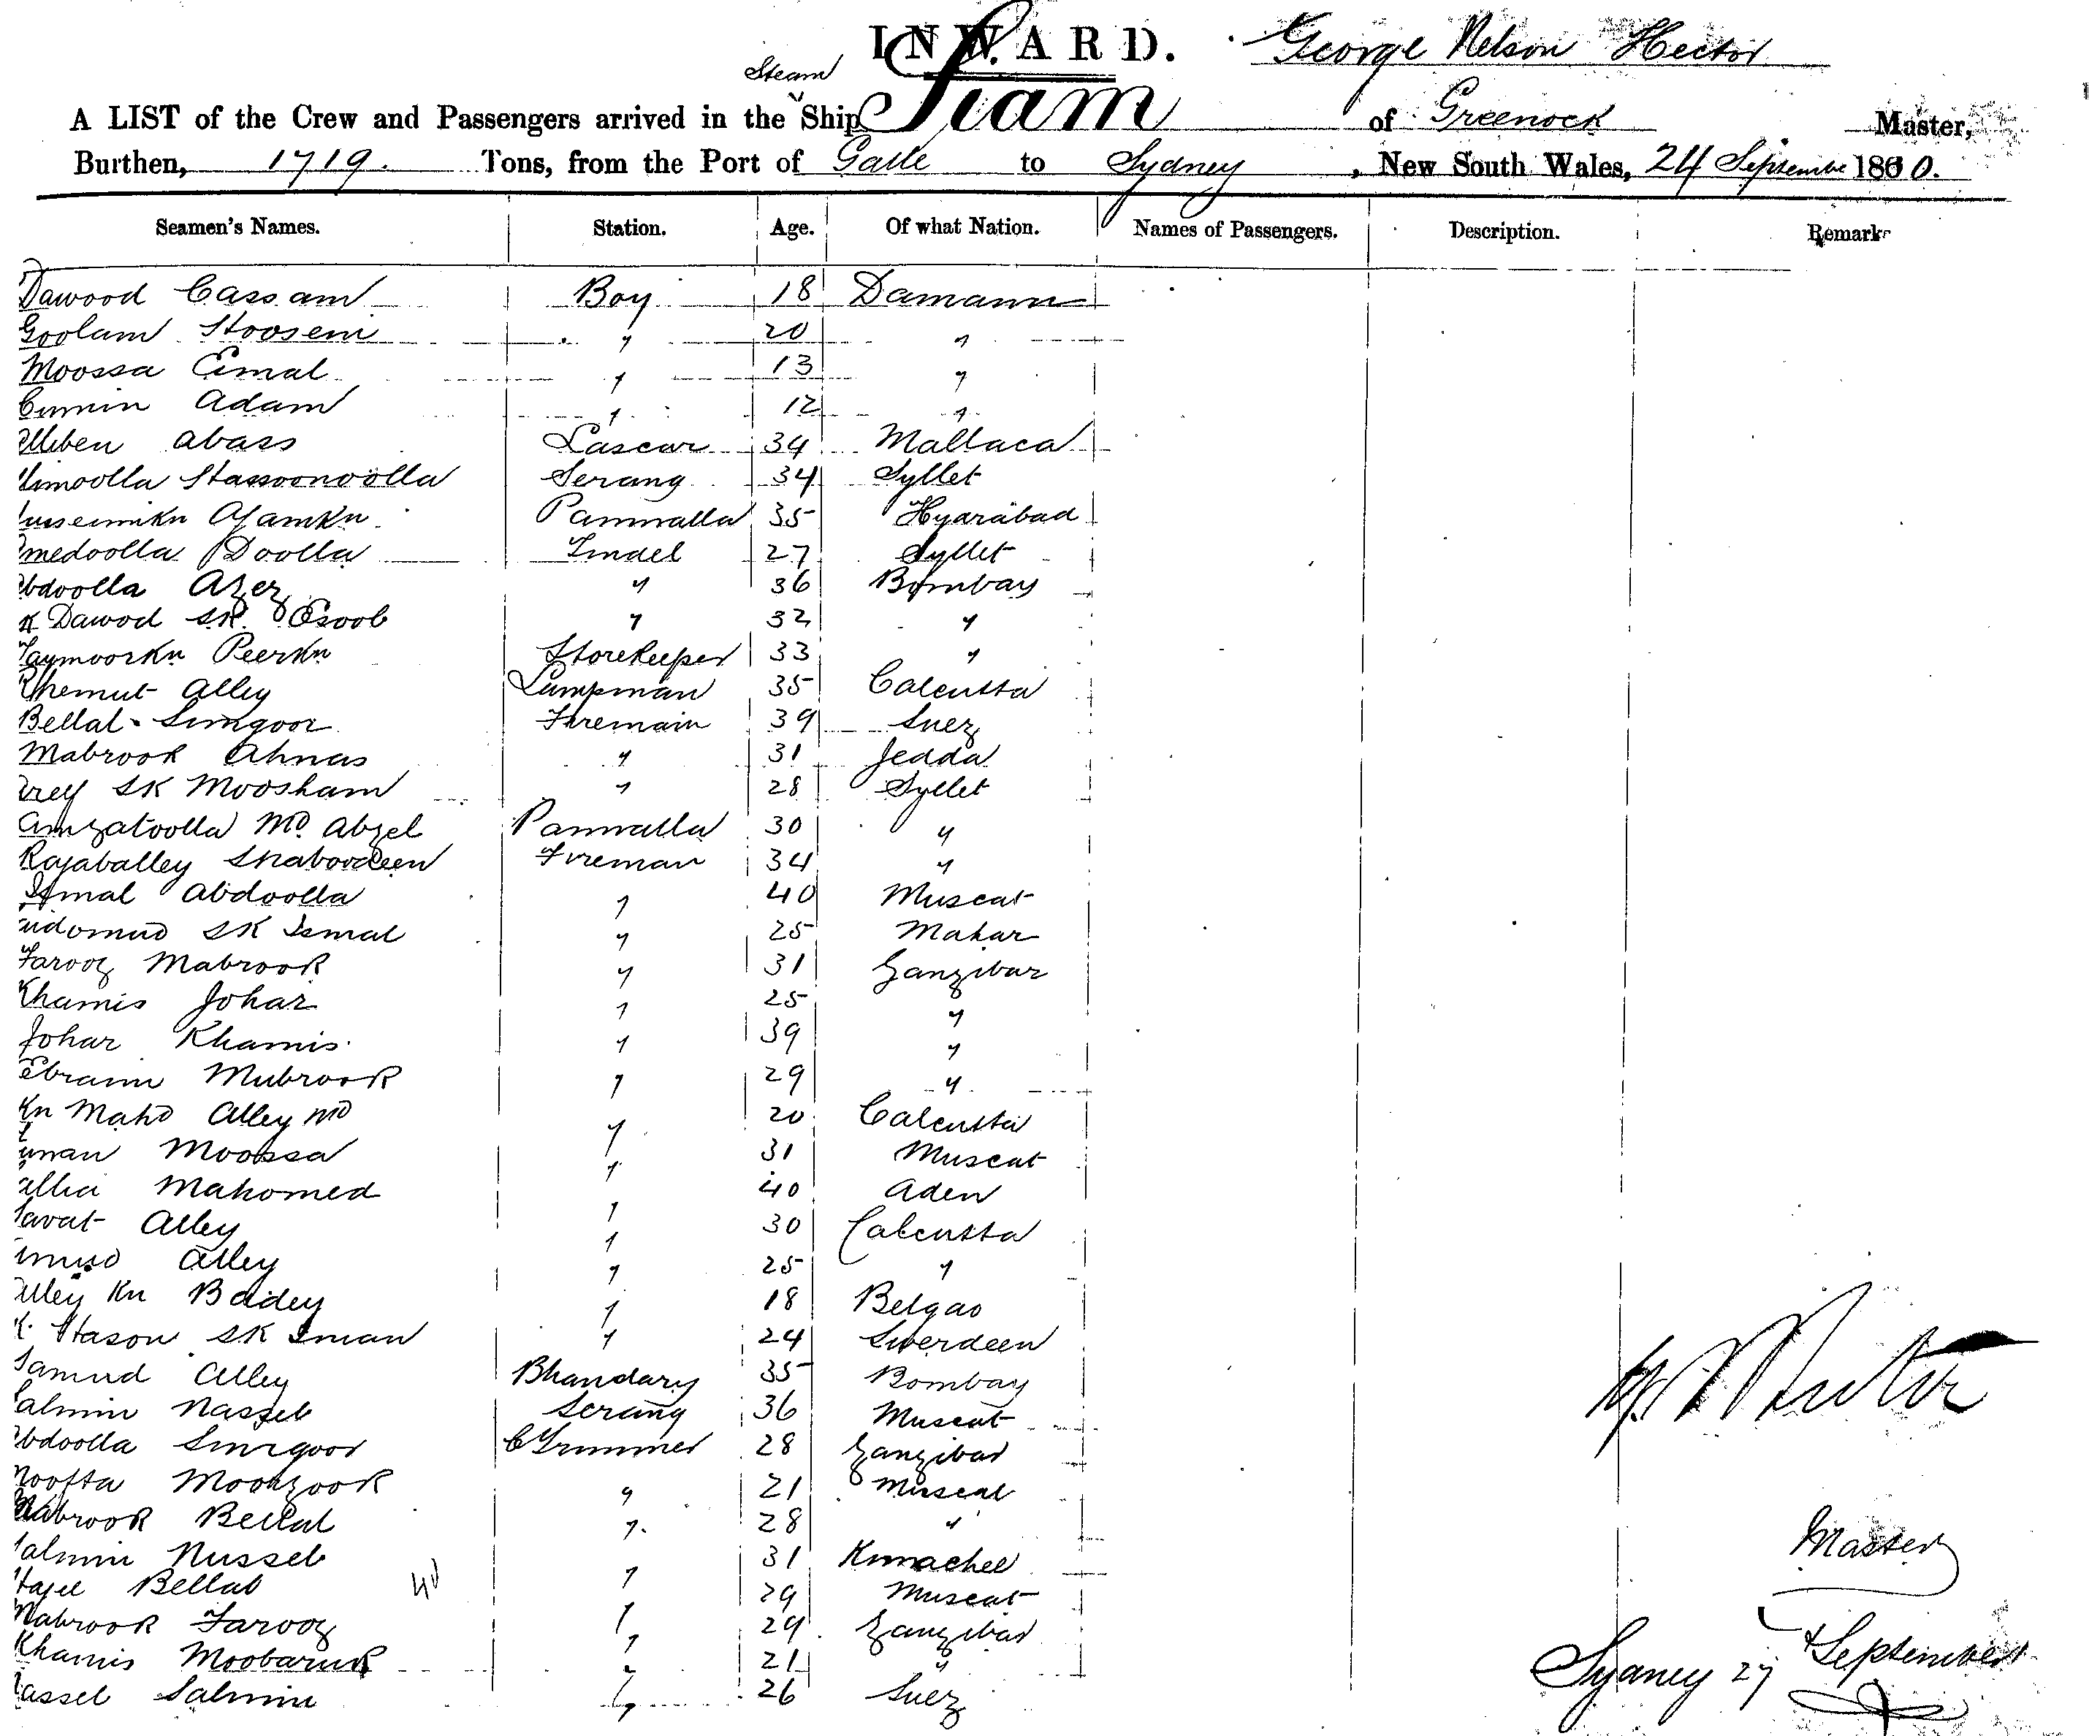 INWARD. George Nelson Hector
A LIST of the Crew and Passengers arrived in the Steam Ship Siam of Greenock Master,
Burthen, 1719. Tons, from the Port of Galle to Sydney, New South Wales, 24 September 1880.
Seamen's Names. Station. Age. Of what Nation. Names of Passengers. Description. Remark
Dawood Cassam Boy 18 Damaun
Goolam Hoosem " 20 "
Moossa Esmal " 13 "
Cumin Adam " 12 "
abass Lascar 34 Mallaca
Hassoonoolla Serang 34 Syllet
Ajamkn Pannialla 35 Hyarabad
medoolla Doolla Tindel 27 Syllet
bdoolla Azez " 36 Bombay
k Dawod SK. Esoob " 32 "
Taymoorkn Peerkn Storekeeper 33 "
Rhemut Alley Lampman 35 Calcutta
Bellal Simgoor Firemain 39 Suez
Mabrook Ahnas " 31 Jedda
SK Moosham " 28 Syllet
Amzatoolla Md. Abzel Pannialla 30 "
Rajaballey Shaboodeen Fireman 34 "
Ismal Abdoolla " 40 Muscat
SK Ismal " 25 Mahar
Farooz Mabrook " 31 Zanzibar
Khamis Johar " 25 "
Johar Khamis " 39 "
Ebram Mubrook " 29 "
Kn Mahd Alley Md " 20 Calcutta
Moossa " 31 Muscat
Mahomed " 40 Aden
Alley " 30 Calcutta
Alley " 25 "
lley Kn Badey " 18 Belgao
Hason SK Iman " 24 Swerdeen
amud Alley Bhandary 35 Bombay
almin Nasseb Serang 36 Muscat
bdoolla Simgoor C Trimmer 28 Zanzibar
Moohzook " 21 Muscat
Mabrook Bellal " 28 "
almin Nusseb " 31
Bellal " 29 Muscat
Mabrook Farooz " 29 Zanzibar
Khamis Moobaruk " 21 "
assel Salmin " 26 Suez
Master
Sydney 27 September